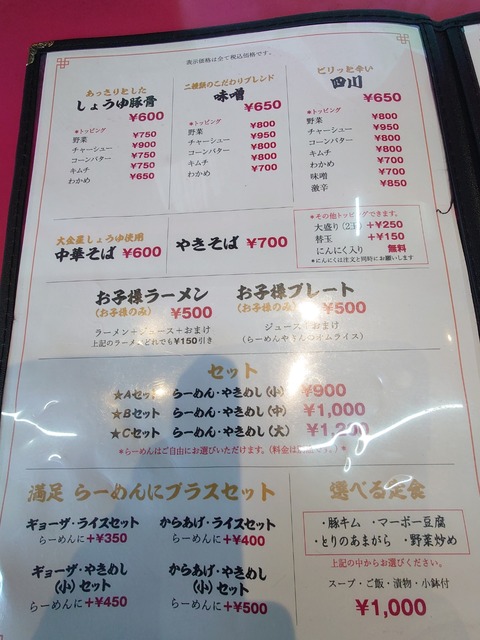 表示価格は全て税込価格です。
あっさりとした
しょうゆ豚骨
¥600
*トッピング
野菜 ¥750
チャーシュー ¥900
コーンバター ¥750
キムチ ¥750
わかめ ¥650
こだわりブレンド
味噌
¥650
*トッピング
野菜 ¥800
チャーシュー ¥950
コーンバター ¥800
キムチ ¥800
わかめ ¥700
ピリッと辛い
四川
¥650
*トッピング
野菜 ¥800
チャーシュー ¥950
コーンバター ¥800
キムチ ¥800
わかめ ¥700
味噌 ¥700
激辛 ¥850
しょうゆ使用
中華そば ¥600
やきそば ¥700
*その他トッピングできます。
大盛り(2玉) +¥250
替玉 +¥150
にんにく入り 無料
*にんにくは注文と同時にお願いします
お子様ラーメン
(お子様のみ) ¥500
ラーメン+ジュース+おまけ
上記のラーメンどれでも¥150引き
お子様プレート
(お子様のみ) ¥500
ジュース+おまけ
(らーめんやきめんのオムライス)
セット
★Aセット らーめん・やきめし(小) ¥900
★Bセット らーめん・やきめし(中) ¥1,000
★Cセット らーめん・やきめし(大)
*らーめんはご自由にお選びいただけます。
満足 らーめんにプラスセット
ギョーザ・ライスセット
らーめんに+¥350
からあげ・ライスセット
らーめんに+¥400
ギョーザ・やきめし
(小)セット
らーめんに+¥450
からあげ・やきめし
(小)セット
らーめんに+¥500
選べる定食
・豚キム ・マーボー豆腐
・とりのあまがら ・野菜炒め
上記の中からお選びください。
スープ・ご飯・漬物・小鉢付
¥1,000